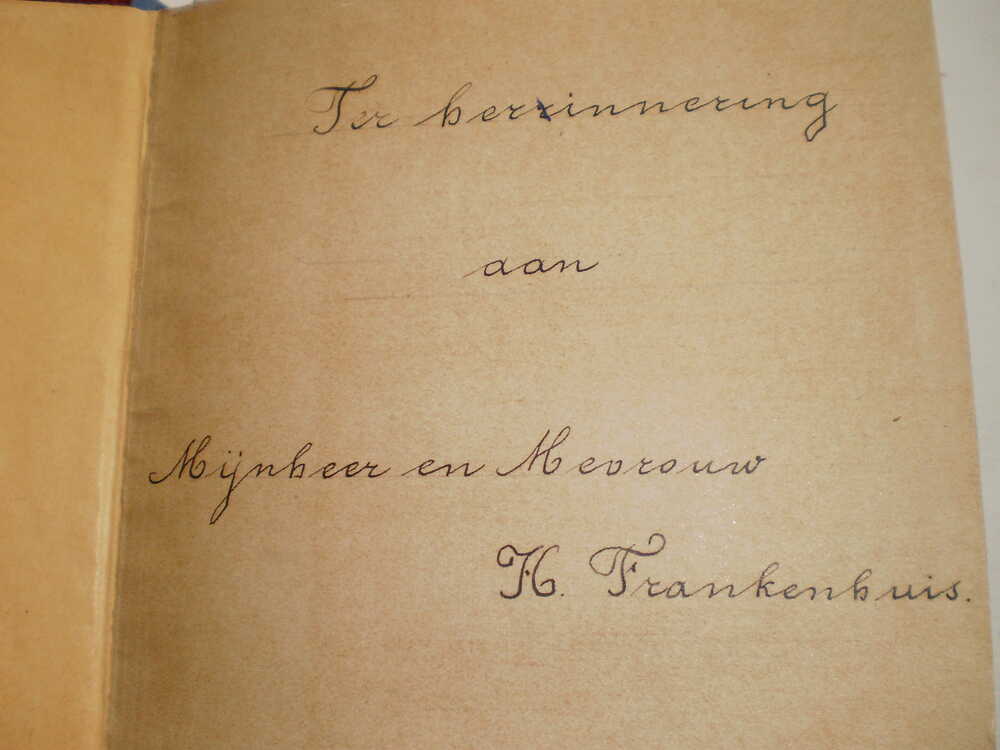 Ter herinnering
aan
Mijnheer en Mevrouw
H. Frankenhuis.